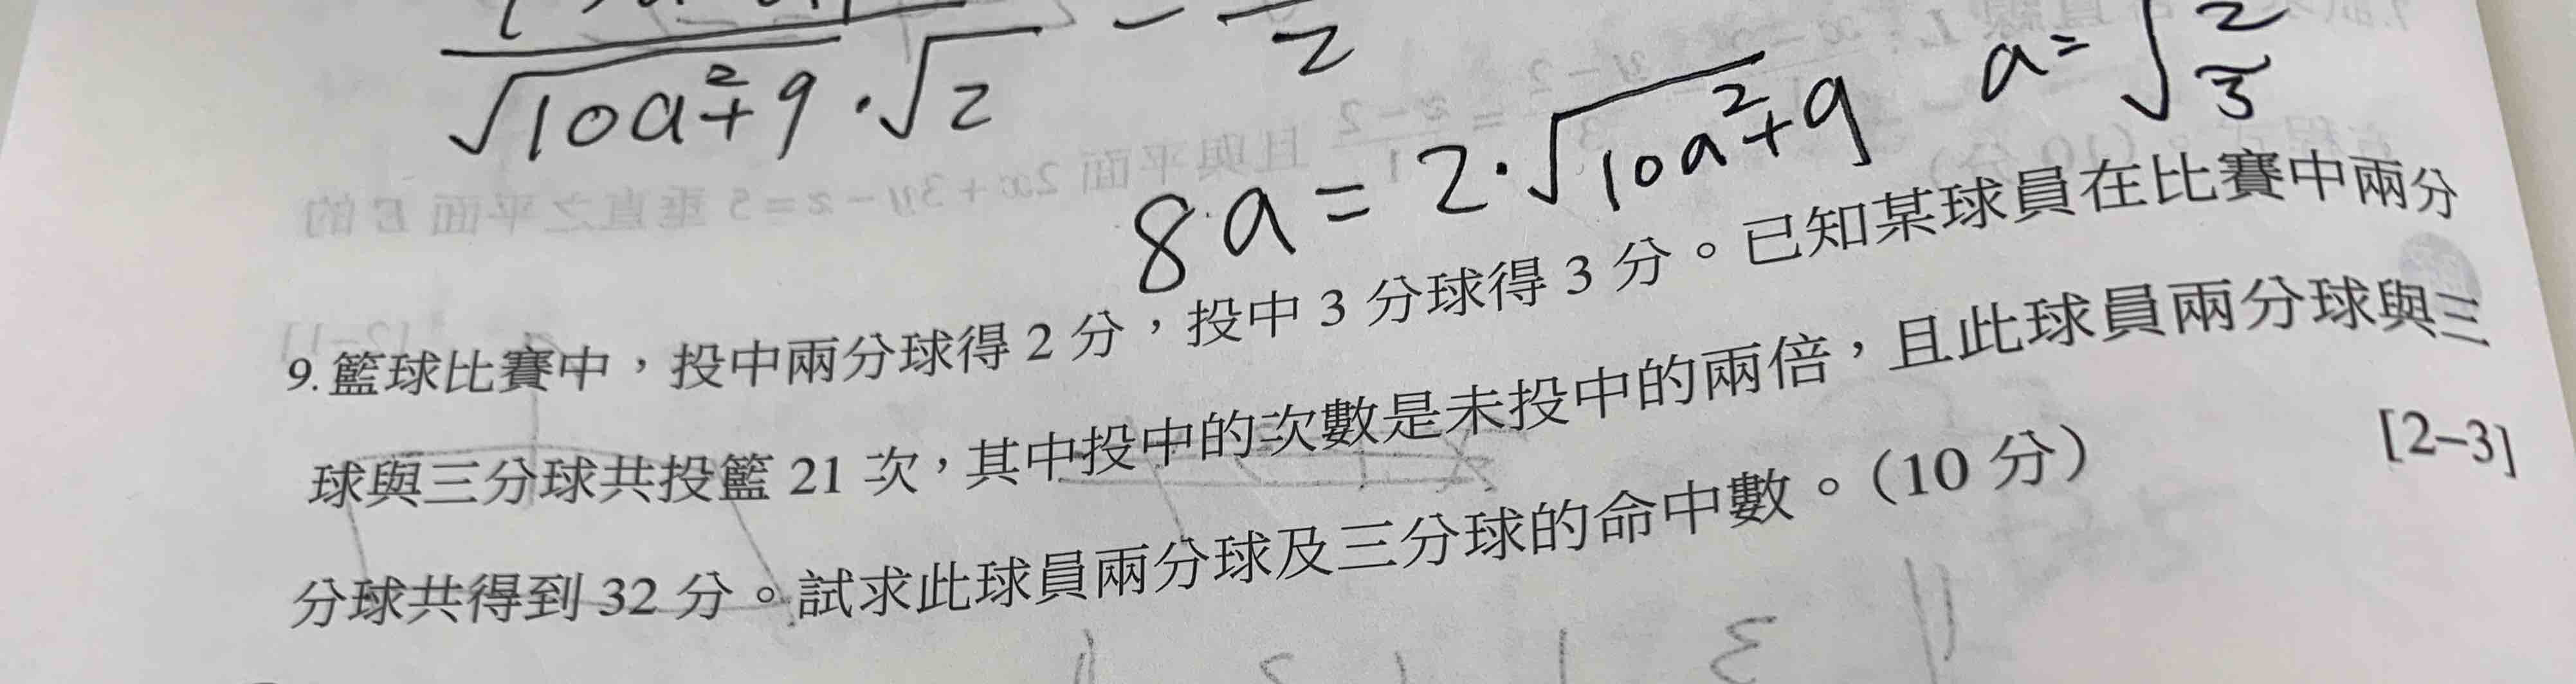 √10a²+9 · √2
2
a=√2/3
8a = 2·√10a²+9
9.籃球比賽中，投中兩分球得 2 分，投中 3 分球得 3 分。已知某球員在比賽中兩分
球與三分球共投籃 21 次，其中投中的次數是未投中的兩倍，且此球員兩分球與三
分球共得到 32 分。試求此球員兩分球及三分球的命中數。（10 分）
[2–3]